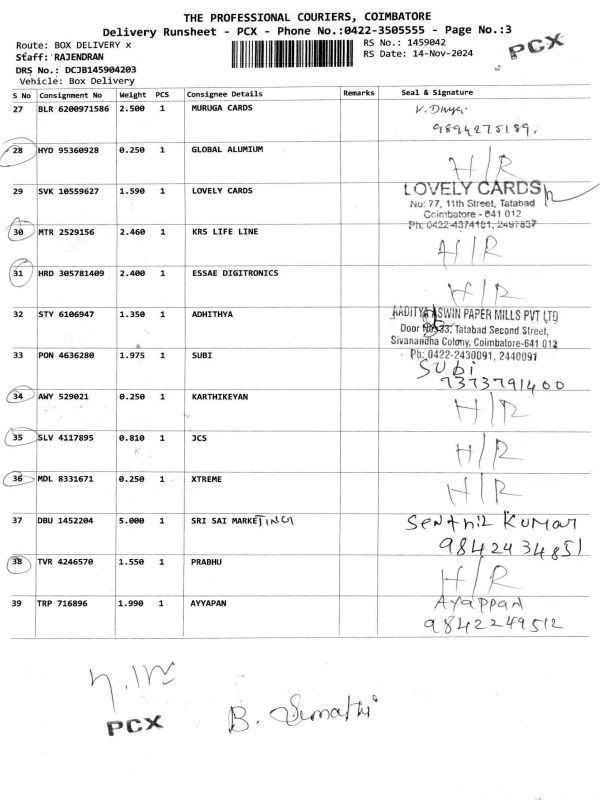 THE PROFESSIONAL COURIERS, COIMBATORE
Delivery Runsheet - PCX - Phone No.:0422-3505555 - Page No.:3
Route: BOX DELIVERY x
RS No.: 1459042
Staff: RAJENDRAN
RS Date: 14-Nov-2024
PCX
DRS No.: DCJB145904203
Vehicle: Box Delivery
S No Consignment No Weight PCS Consignee Details Remarks Seal & Signature
27 BLR 6200971586 2.500 1 MURUGA CARDS V. Divya
9894275189.
28 HYD 95360928 0.250 1 GLOBAL ALUMIUM H/R
29 SVK 10559627 1.590 1 LOVELY CARDS LOVELY CARDS
No: 77, 11th Street, Tatabad
Coimbatore - 641 012
Ph: 0422-4374181, 2497837
30 MTR 2529156 2.460 1 KRS LIFE LINE H/R
31 HRD 305781409 2.400 1 ESSAE DIGITRONICS H/R
32 STY 6106947 1.350 1 ADHITHYA AADITYA ASWIN PAPER MILLS PVT LTD
Door No. 33, Tatabad Second Street,
Sivanandha Colony, Coimbatore-641 012
Ph: 0422-2430091, 2440091
33 PON 4636280 1.975 1 SUBI SUBi
7373791400
34 AWY 529021 0.250 1 KARTHIKEYAN H/R
35 SLV 4117895 0.810 1 JCS H/R
36 MDL 8331671 0.250 1 XTREME H/R
37 DBU 1452204 5.000 1 SRI SAI MARKETING Senthil Kumar
9842434851
38 TVR 4246570 1.550 1 PRABHU H/R
39 TRP 716896 1.990 1 AYYAPAN Ayappan
9842249512
PCX
B. Sumathi